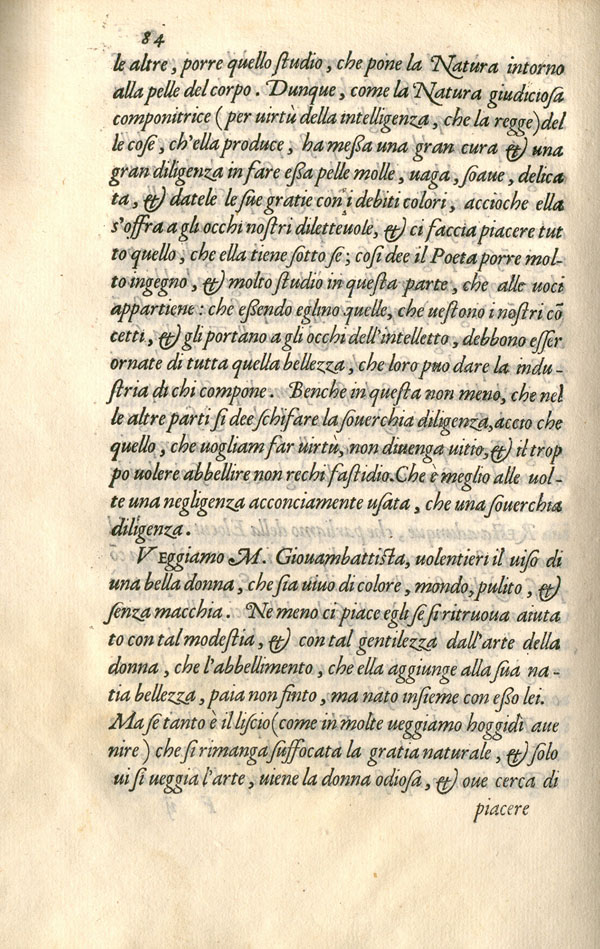 84
le altre, porre quello ſtudio, che pone la Natura intorno
alla pelle del corpo. Dunque, come la Natura giudicioſa
componitrice (per uirtù della intelligenza, che la regge) del
le coſe, ch'ella produce, ha meßa una gran cura & una
gran diligenza in fare eßa pelle molle, uaga, ſoaue, delica
ta, & datele le ſue gratie con i debiti colori, accioche ella
s'offra a gli occhi noſtri diletteuole, & ci faccia piacere tut
to quello, che ella tiene sotto ſe; coſi dee il Poeta porre mol-
to ingegno, & molto ſtudio in queſta parte, che alle uoci
appartiene: che eßendo eglino quelle, che ueſtono i noſtri cō
cetti, & gli portano a gli occhi dell'intelletto, debbono eſſer
ornate di tutta quella bellezza, che loro puo dare la indu-
ſtria di chi compone. Benche in queſta non meno, che nel
le altre parti ſi dee ſchifare la ſouerchia diligenza, accio che
quello, che uogliam far uirtù, non diuenga uitio, & il trop
po uolere abbellire non rechi faſtidio. Che è meglio alle uol-
te una negligenza acconciamente uſata, che una ſouerchia
diligenza.
VEggiamo M. Giouambattiſta, uolentieri il uiſo di
una bella donna, che ſia uiuo di colore, mondo, pulito, &
ſenza macchia. Ne meno ci piace egli se ſi ritruoua aiuta
to con tal modeſtia, & con tal gentilezza dall'arte della
donna, che l'abbellimento, che ella aggiunge alla ſua na-
tia bellezza, paia non finto, ma nato inſieme con eßo lei.
Ma ſe tanto è il liſcio (come in molte ueggiamo hoggidì aue
nire) che ſi rimanga ſuffocata la gratia naturale, & ſolo
ui ſi ueggia l'arte, uiene la donna odioſa, & oue cerca di
piacere